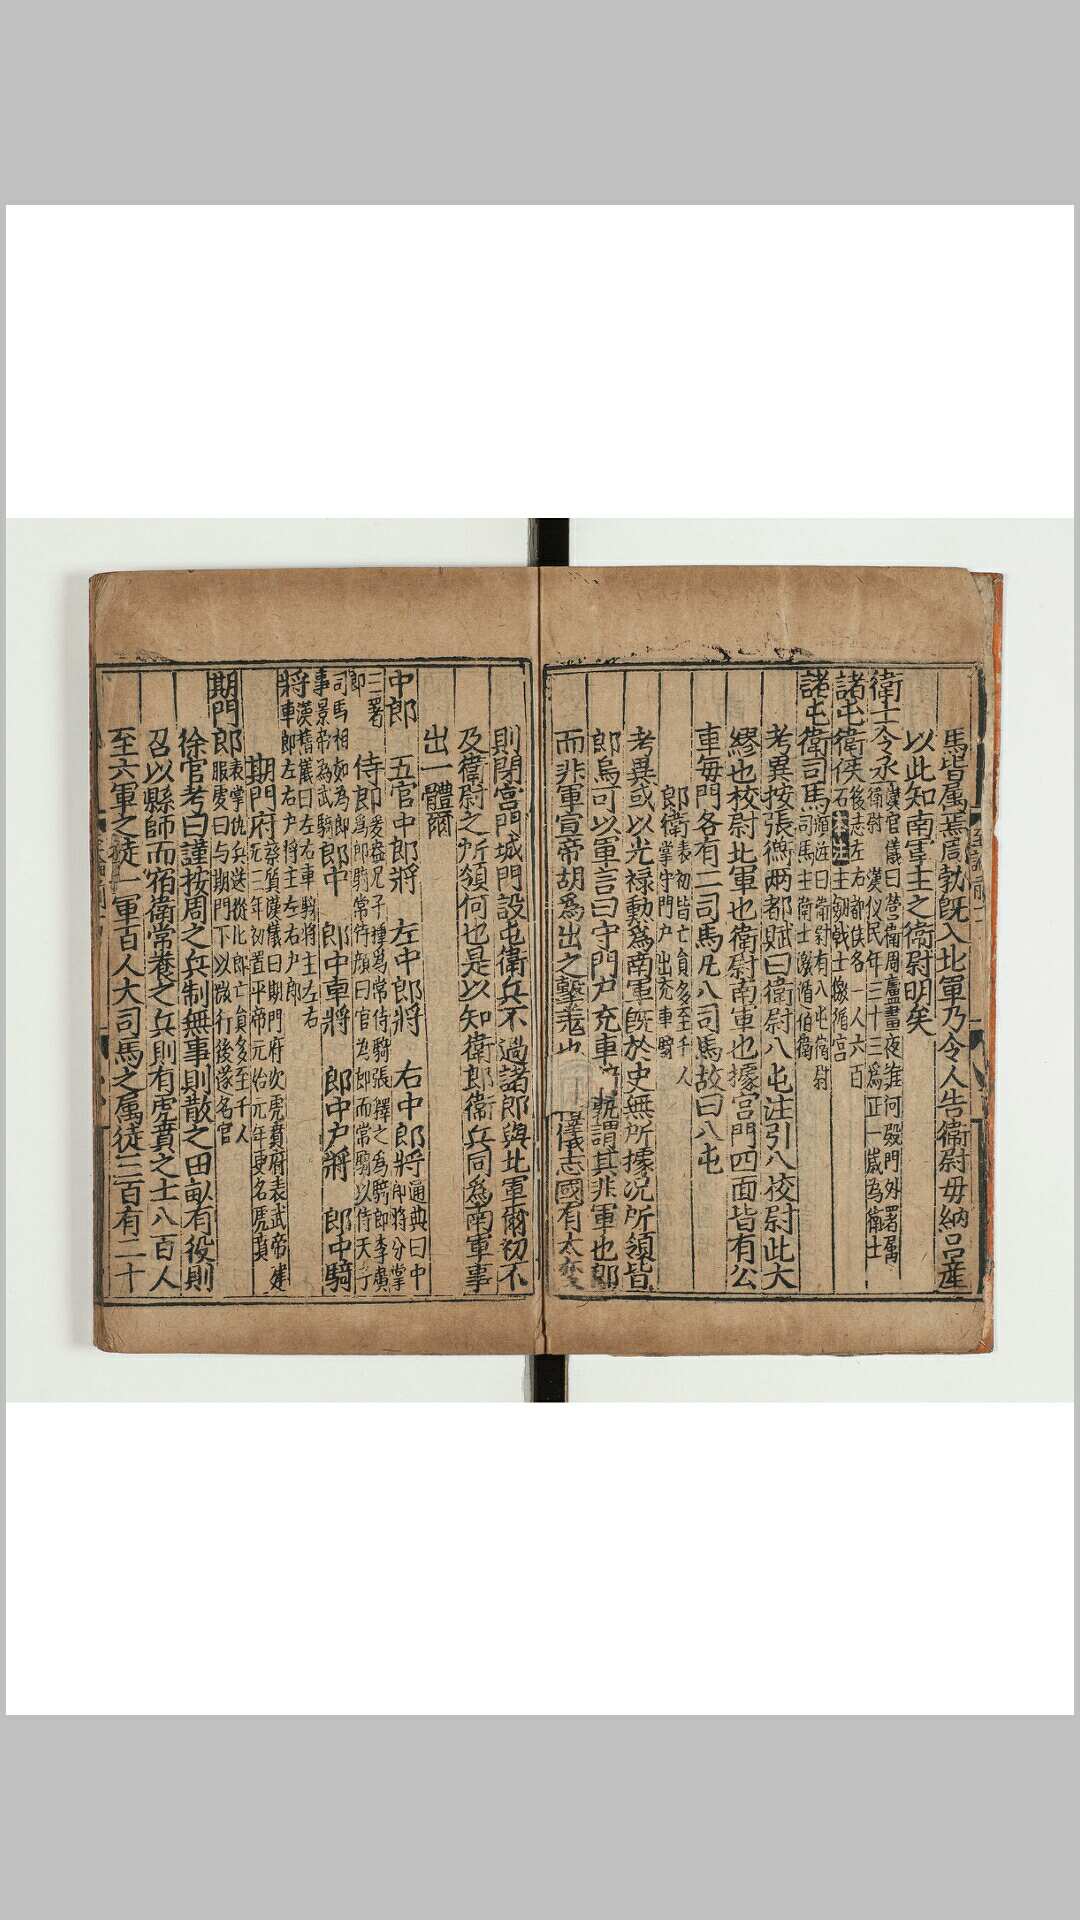 馬皆属焉周勃既入北軍乃令人告衛尉毋納吕産
以此知南軍主之衛尉明矣
衛士令丞漢官儀曰営衛周廬晝夜誰何殿門外署属
衛尉 漢仪民年二十三為正一歳為衛士
諸屯衛候後志左右都候各一人六百
石本注主劔戟士徼循宫
諸屯衛司馬師古曰衛尉有八屯衛尉
司馬主衛士徼循宿衛
考異按張衡两都賦曰衛尉八屯注引八校尉此大
繆也校尉北軍也衛尉南軍也據宫門四面皆有公
車每門各有二司馬凡八司馬故曰八屯
郎衛表初皆亡員多至千人
掌守門户出充車騎
考異或以光禄勲為南軍既於史無所據况所領皆
郎烏可以軍言曰守門户充車 孰謂其非軍也郎
而非軍宣帝胡為出之擊羗也 漢儀志國有大变
則閉宫門城門設屯衛兵不過諸郎與北軍爾初不
及衛尉之所領何也是以知衛郎衛兵同為南軍事
出一體爾
中郎 五官中郎將 左中郎將 右中郎將通典曰中
郎將分掌
三署
郎 侍郎爰盎兄子種為常侍騎張釋之為騎郎李廣
為郎騎常侍顔曰官為郎而常騎以侍天子
司馬相如為郎
事景帝為武騎郎中 郎中車將 郎中户將 郎中騎
將漢舊儀曰左右車騎將主左右
車郎左右户將主左右户郎
期門府蔡質漢儀曰期門府次虎賁府表武帝建
元二年初置平帝元始元年更名虎賁
期門郎表掌仇兵送從比郎亡員多至千人
服虔曰与期門下以微行後遂名官
徐官考曰謹按周之兵制無事則散之田畝有役則
召以縣師而宿衛常養之兵則有虎賁之士八百人
至六軍之徒一軍百人大司馬之属徒三百有二十